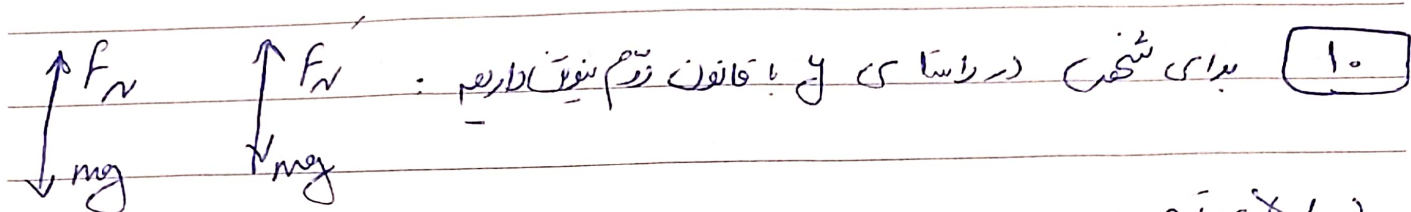 ۱۰ برای شخص در راستای y با قانون دوم نیوتن داریم :
F_N F_N
mg mg